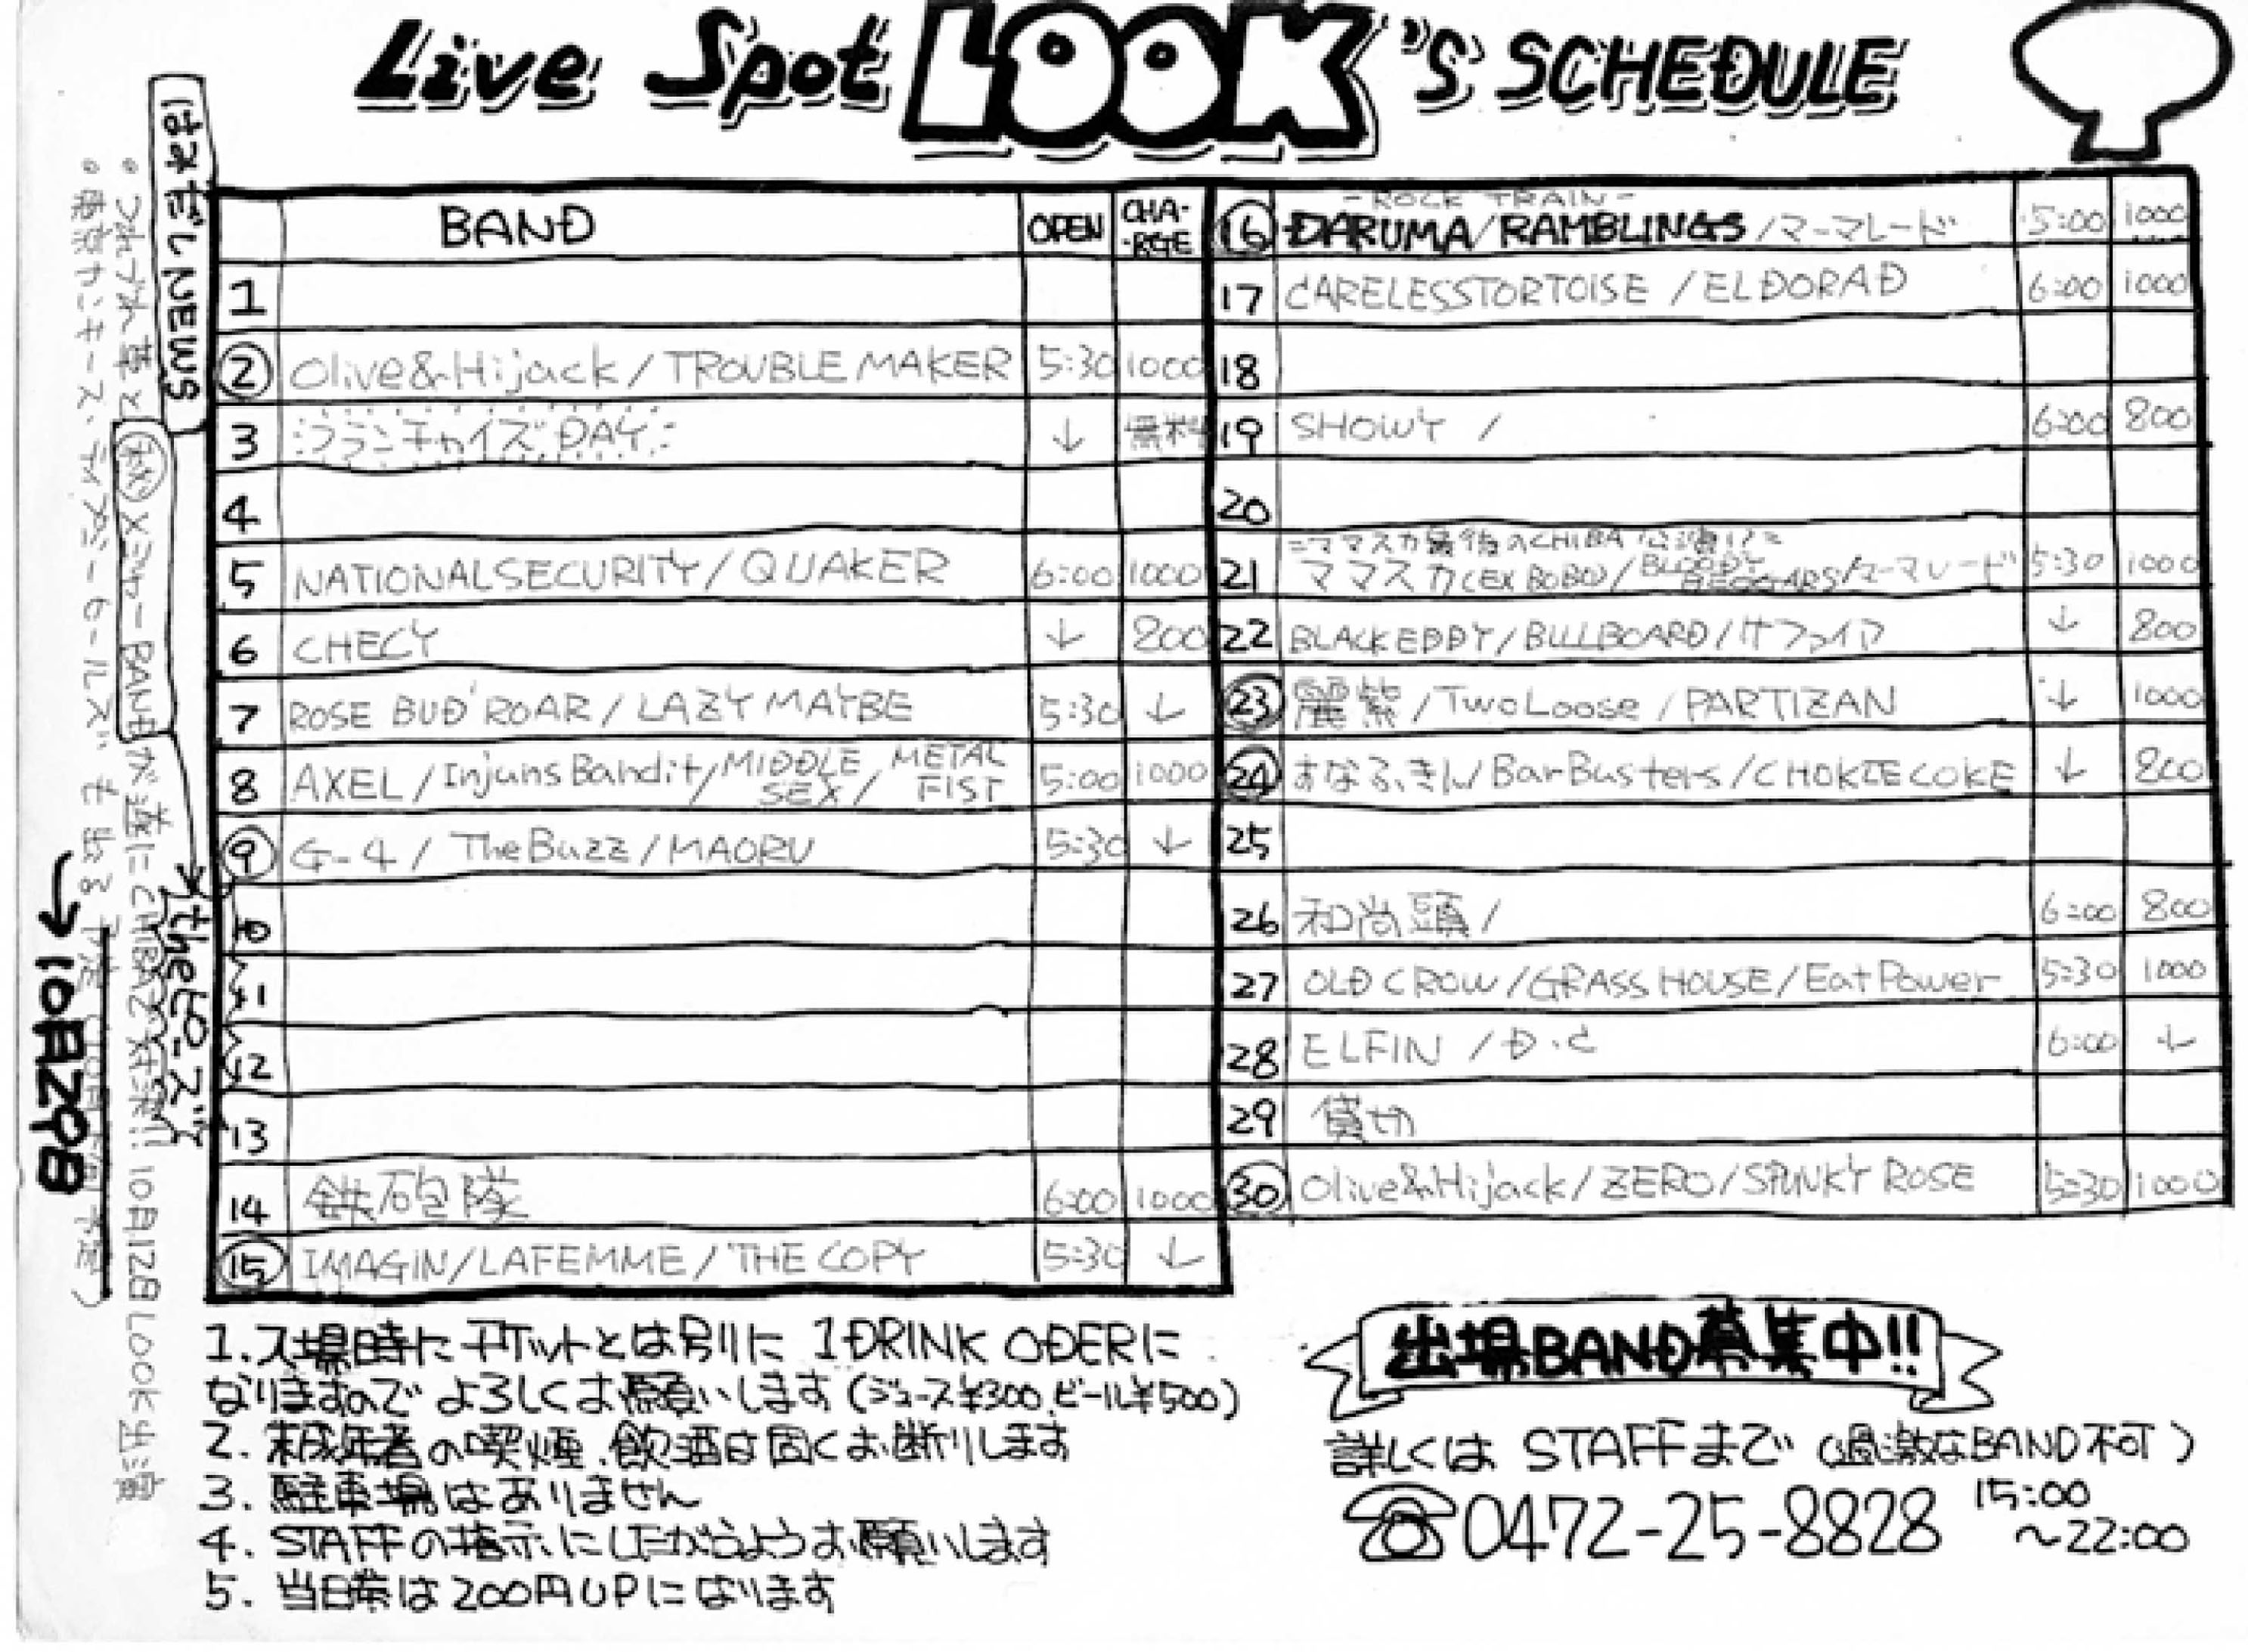 Live Spot LOOK'S SCHEDULE
BAND OPEN CHA-RGE
1
② Olive&Hijack/TROUBLE MAKER 5:30 1000
3 フランチャイズDAY ↓ 無料
4
5 NATIONALSECURITY/QUAKER 6:00 1000
6 CHECY ↓ 800
7 ROSE BUD ROAR/LAZY MAYBE 5:30 ↓
8 AXEL/Injuns Bandit/MIDDLE SEX/METAL FIST 5:00 1000
⑨ G-4/The Buzz/MAORU 5:30 ↓
10
11
12
13
14 鉄砲隊 6:00 1000
⑮ IMAGIN/LAFEMME/THE COPY 5:30 ↓
-ROCK TRAIN-
⑯ DARUMA/RAMBLINGS/マーマレード 5:00 1000
17 CARELESSTORTOISE/ELDORAD 6:00 1000
18
19 SHOWY/ 6:00 800
20
=ママスカ最後のCHIBA公演!!=
21 ママスカ(EX BOBO)/BLOODY BEGGARS/マーマレード 5:30 1000
22 BLACKEDDY/BILLBOARD/サファイア ↓ 800
㉓ 麗紫/TwoLoose/PARTIZAN ↓ 1000
㉔ すなふきん/BarBusters/CHOKIECOKE ↓ 800
25
26 和尚頭/ 6:00 800
27 OLD CROW/GRASS HOUSE/Eat Power 5:30 1000
28 ELFIN/D.C 6:00 ↓
29 貸切
㉚ Olive&Hijack/ZERO/SPUNKY ROSE 5:30 1000
はみだしNEWS
㊙メジャーBANDが遂にCHIBAに対決!! 10月12日LOOK出演
theピーズ
東京ヤンキース、ライブジーロールズも出る予定(10月下旬予定)
→10月29日
1. 入場時にチケットとは別に 1DRINK ODERに
なりますのでよろしくお願いします(ジュース¥300、ビール¥500)
2. 未成年者の喫煙、飲酒は固くお断りします
3. 駐車場はありません
4. STAFFの指示にしたがうようお願いします
5. 当日券は200円UPになります
出場BAND募集中!!
詳しくは STAFFまで(過激なBAND不可)
☎0472-25-8828 15:00
〜22:00